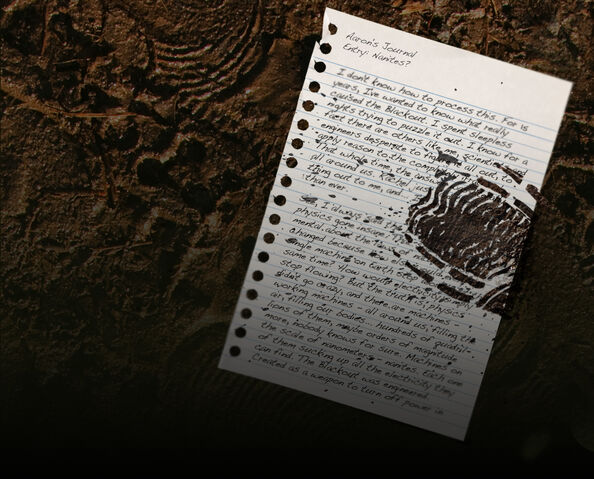 Aaron's Journal
Entry: Nanites?
I don't know how to process this. For is
years, I've wanted to know what really
caused the Blackout. I spent sleepless
nights trying to puzzle it out. I know for a
fact there are others like scientists
engineers desperate to all out, to
apply reason to the
That whole time, the
all around us. Rachel just
thing out to me, and
than ever.
See, I always
physics gone insane,
mental about the
changed because
single machine on Earth stop
same time? How would electricity
stop flowing? But the truth is, physics
didn't go crazy, and there are machines
working machines - all around us, filling the
air, filling our bodies - hundreds of quadril-
lions of them, maybe orders of magnitude
more, nobody knows for sure. Machines on
the scale of nanometers - nanites. Each one
of them sucking up all the electricity they
can find. The Blackout was engineered.
Created as a weapon to turn off power in